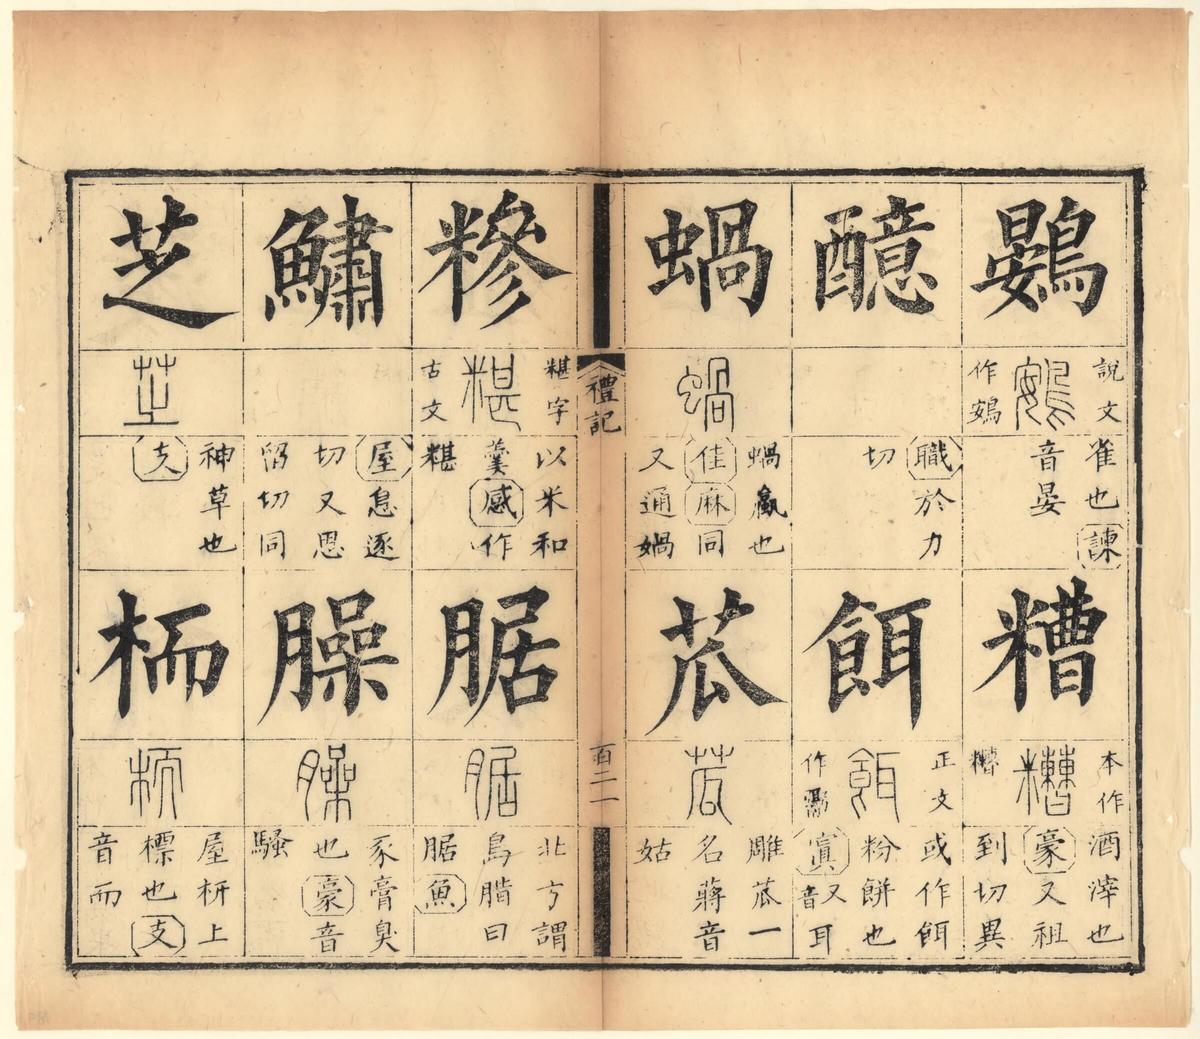 鷃
說文作鴳
雀也諫音晏
醷
職於力切
蝸
蝸
蝸蠃也佳麻同又通媧
糟
本作𨢌
酒滓也豪又祖到切異
餌
正文作䰞
或作餌粉餅也寘又音耳
苽
苽
雕苽一名蔣音姑
禮記
百二一
糝
糂字古文
以米和羹感作糂
鱐
屋息逐切又思留切同
芝
芝
神草也支
腒
腒
北方謂鳥腊曰腒魚
臊
臊
豕膏臭也豪音騷
栭
栭
屋枅上標也支音而